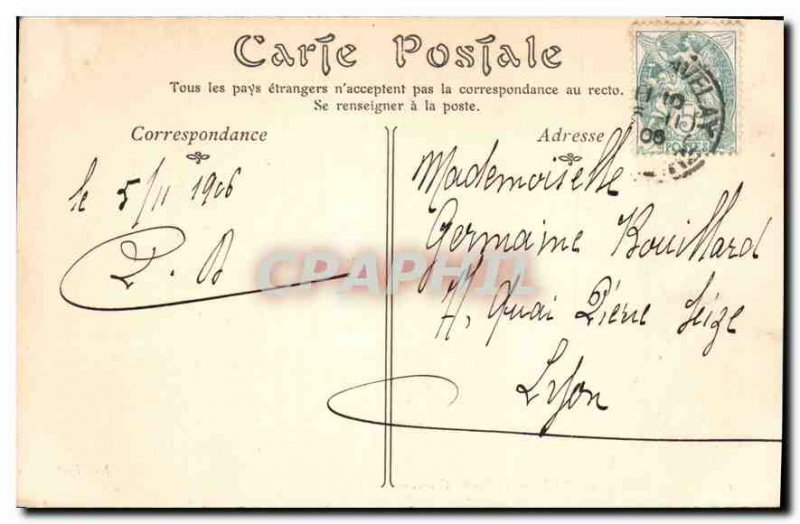 Carte Postale
Tous les pays étrangers n'acceptent pas la correspondance au recto.
Se renseigner à la poste.
Correspondance
Adresse
le 5/11 1906
Mademoiselle
Germaine Bouillard
Quai Pierre Seize
Lyon
CPAPHIL